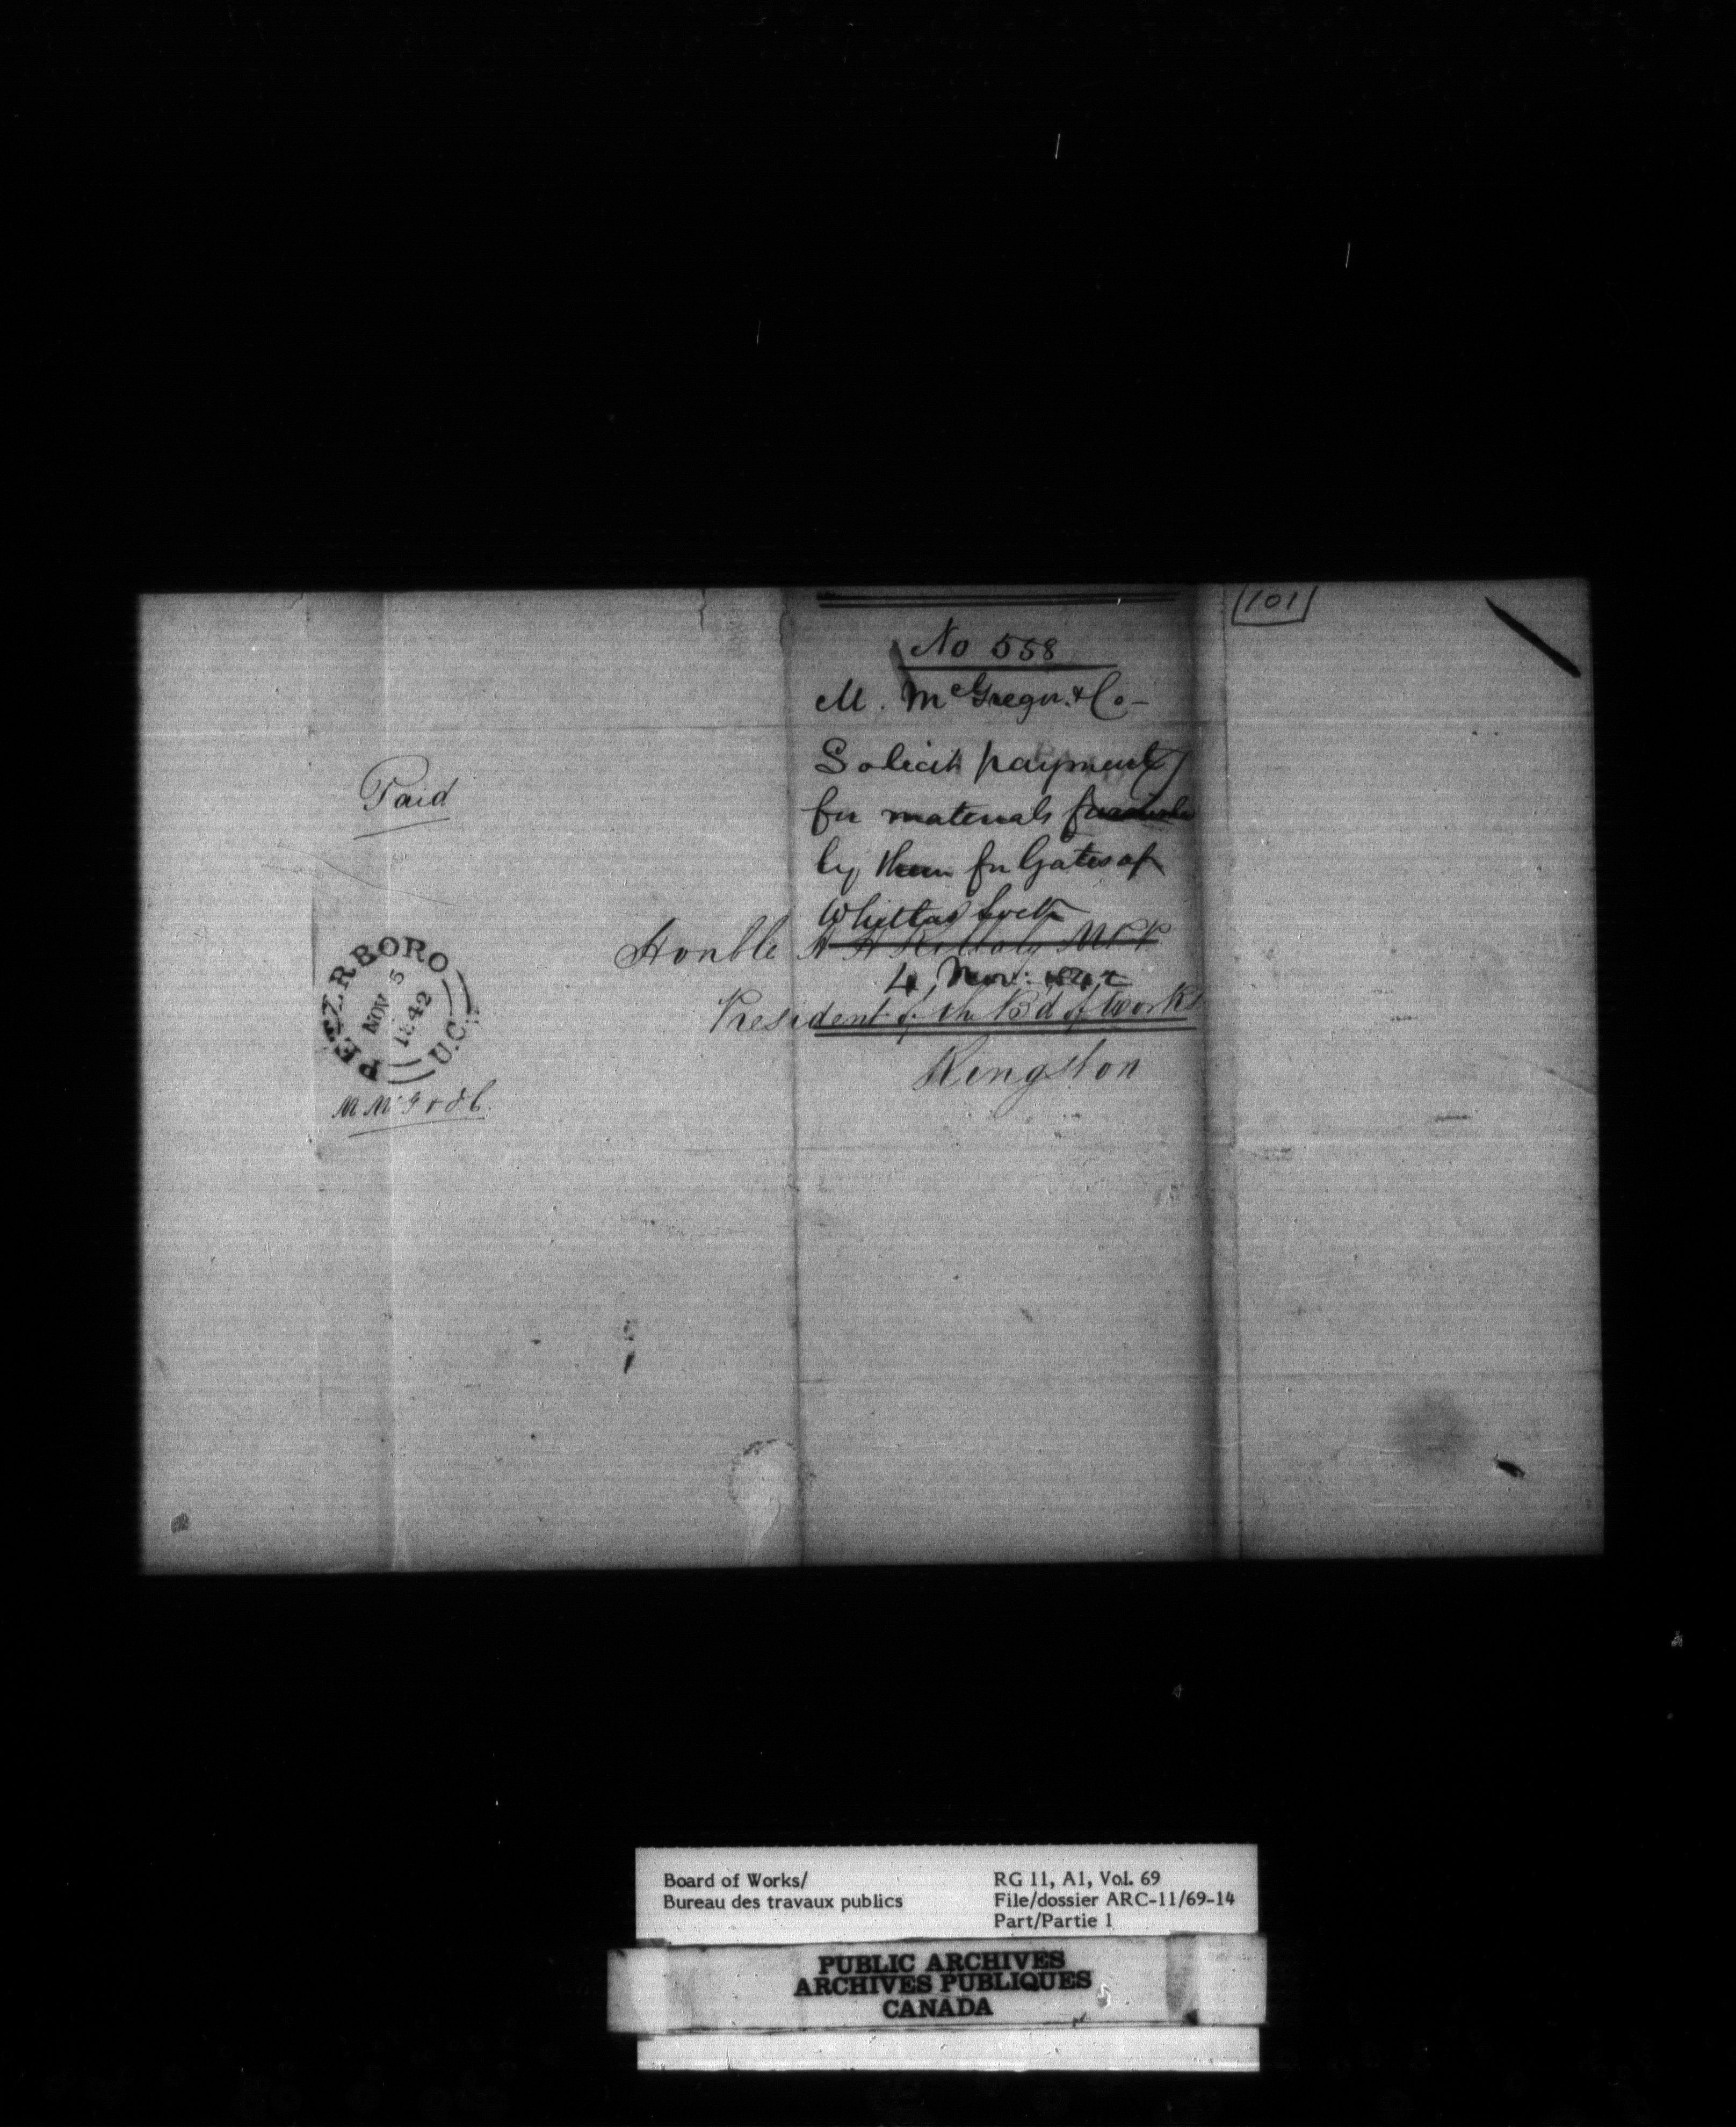 101
No 558
M. McGregor & Co -
Solicit payment
for materials furnished
by them for Gates of
Whitlas Lock
Paid
Honble H H Killaly MPP
4 Nov: 1842
President of the Bd of Works
Kingston
PETERBORO
NOV 5
1842
U.C.
M McG & Co
Board of Works/
Bureau des travaux publics
RG 11, A1, Vol. 69
File/dossier ARC-11/69-14
Part/Partie 1
PUBLIC ARCHIVES
ARCHIVES PUBLIQUES
CANADA